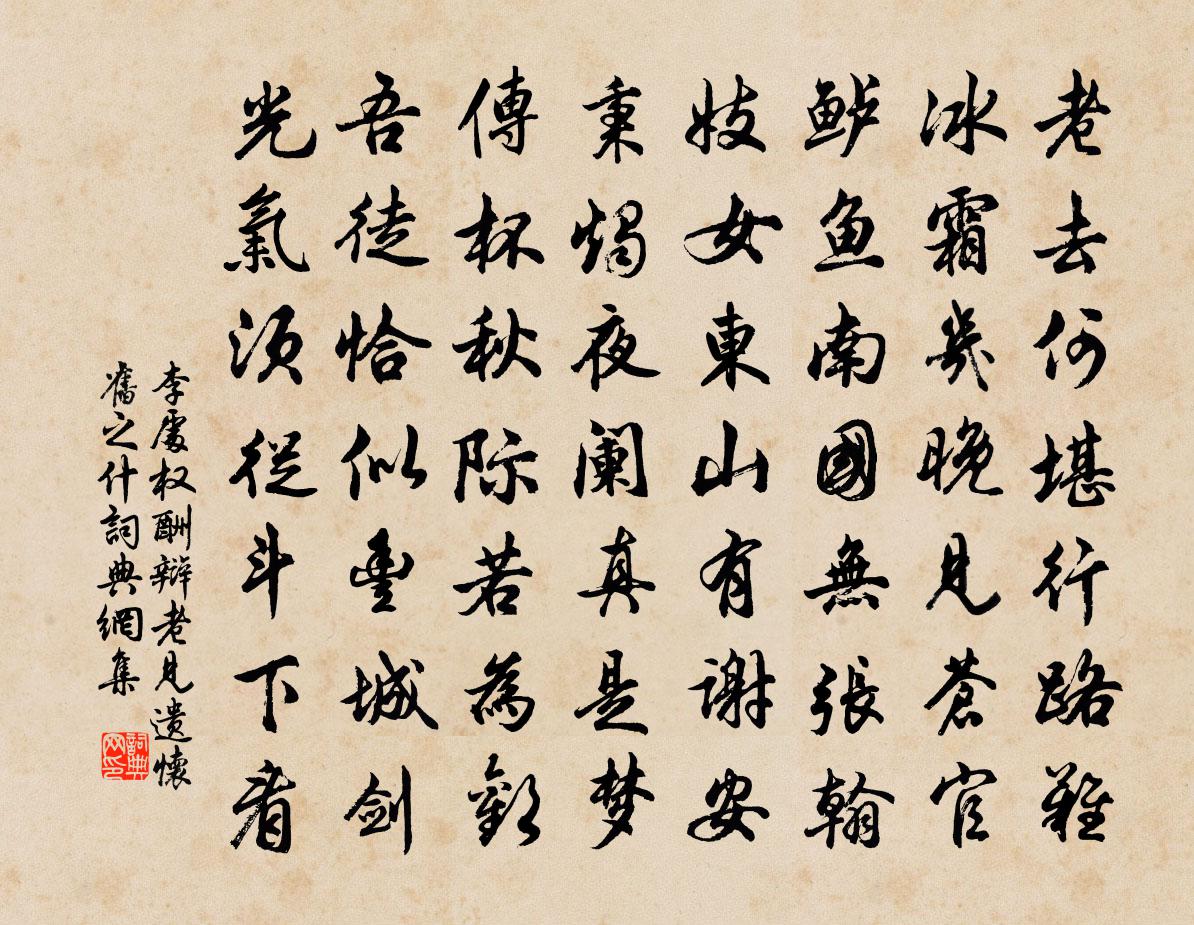 老去何堪行路難
冰霜幾晚見蒼官
鲈鱼南國無張翰
妓女東山有謝安
秉燭夜阑真是梦
傳杯秋际若為歡
吾徒恰似豐城劍
光氣須從斗下看
李處权酬辯老見遗懷
舊之什詞典網集
詞典网印